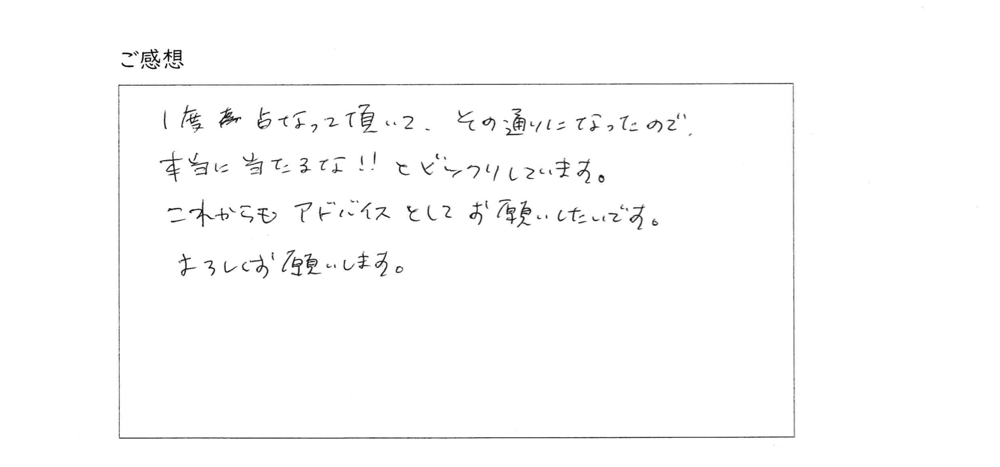 ご感想
1度占なって頂いて、その通りになったので、
本当に当たるな!!とビックリしています。
これからもアドバイスとしてお願いしたいです。
よろしくお願いします。